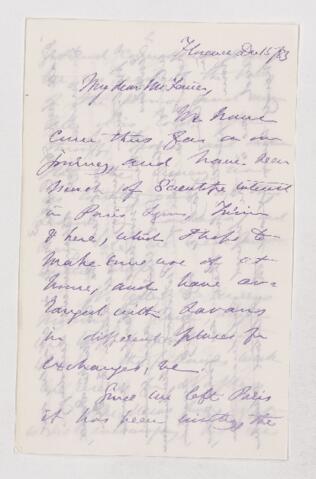 Florence Dec 15/83
My dear Mr
We have
come thus far on our
journey, and have seen
much of Scientific interest
in Paris, Lyons, Turin
& here, which I hope to
make some use of at
home, and have arr
with Savans
in different places for
exchanges, &c.
Since we left Paris
it has been the